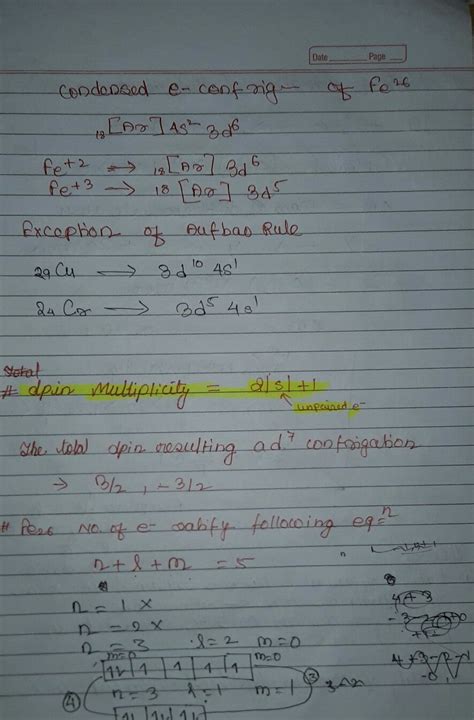 Date Page
Condensed e- config- of Fe26
18[Ar] 4s2 3d6
Fe+2 → 18[Ar] 3d6
Fe+3 → 18 [Ar] 3d5
Exception of Aufbao Rule
29Cu → 3d10 4s1
24Cr → 3d5 4s1
Total
# spin Multiplicity = 2|s|+1
unpaired e-
The total spin resulting a d7 configation
→ 3/2, -3/2
# Fe26 No. of e- satify following eq=n
n+l+m = 5
n = 1 X
n = 2 X
n = 3 l=2 m=0
m=0 m=0
n=3 l=1 m=1
④ ③